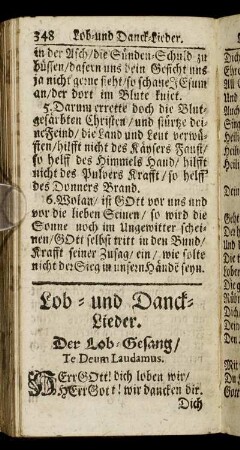 348 Lob- und Danck-Lieder.
in der Asch/ die Sünden-Schuld zu
büssen/ dafern uns dein Gesicht uns
ja nicht gerne sieht/ so schaue JEsum
an/ der dort im Blute kniet.
5. Darum errette doch die Blut-
gefärbten Christen/ und stürtze dei-
ne Feind/ die Land und Leut verwü-
sten/ hilfft nicht des Käysers Faust/
so helff des Himmels Hand/ hilfft
nicht des Pulvers Krafft/ so helff
des Donners Brand.
6. Wolan/ ist GOtt vor uns und
vor die lieben Seinen/ so wird die
Sonne noch im Ungewitter schei-
nen/ GOtt selbst tritt in den Bund/
Krafft seiner Zusag/ ein/ wie solte
nicht der Sieg in unsern Händē seyn.
Lob- und Danck-
Lieder.
Der Lob-Gesang/
Te Deum Laudamus.
HErr GOtt! dich loben wir/
HErr Gott! wir dancken dir.
Dich